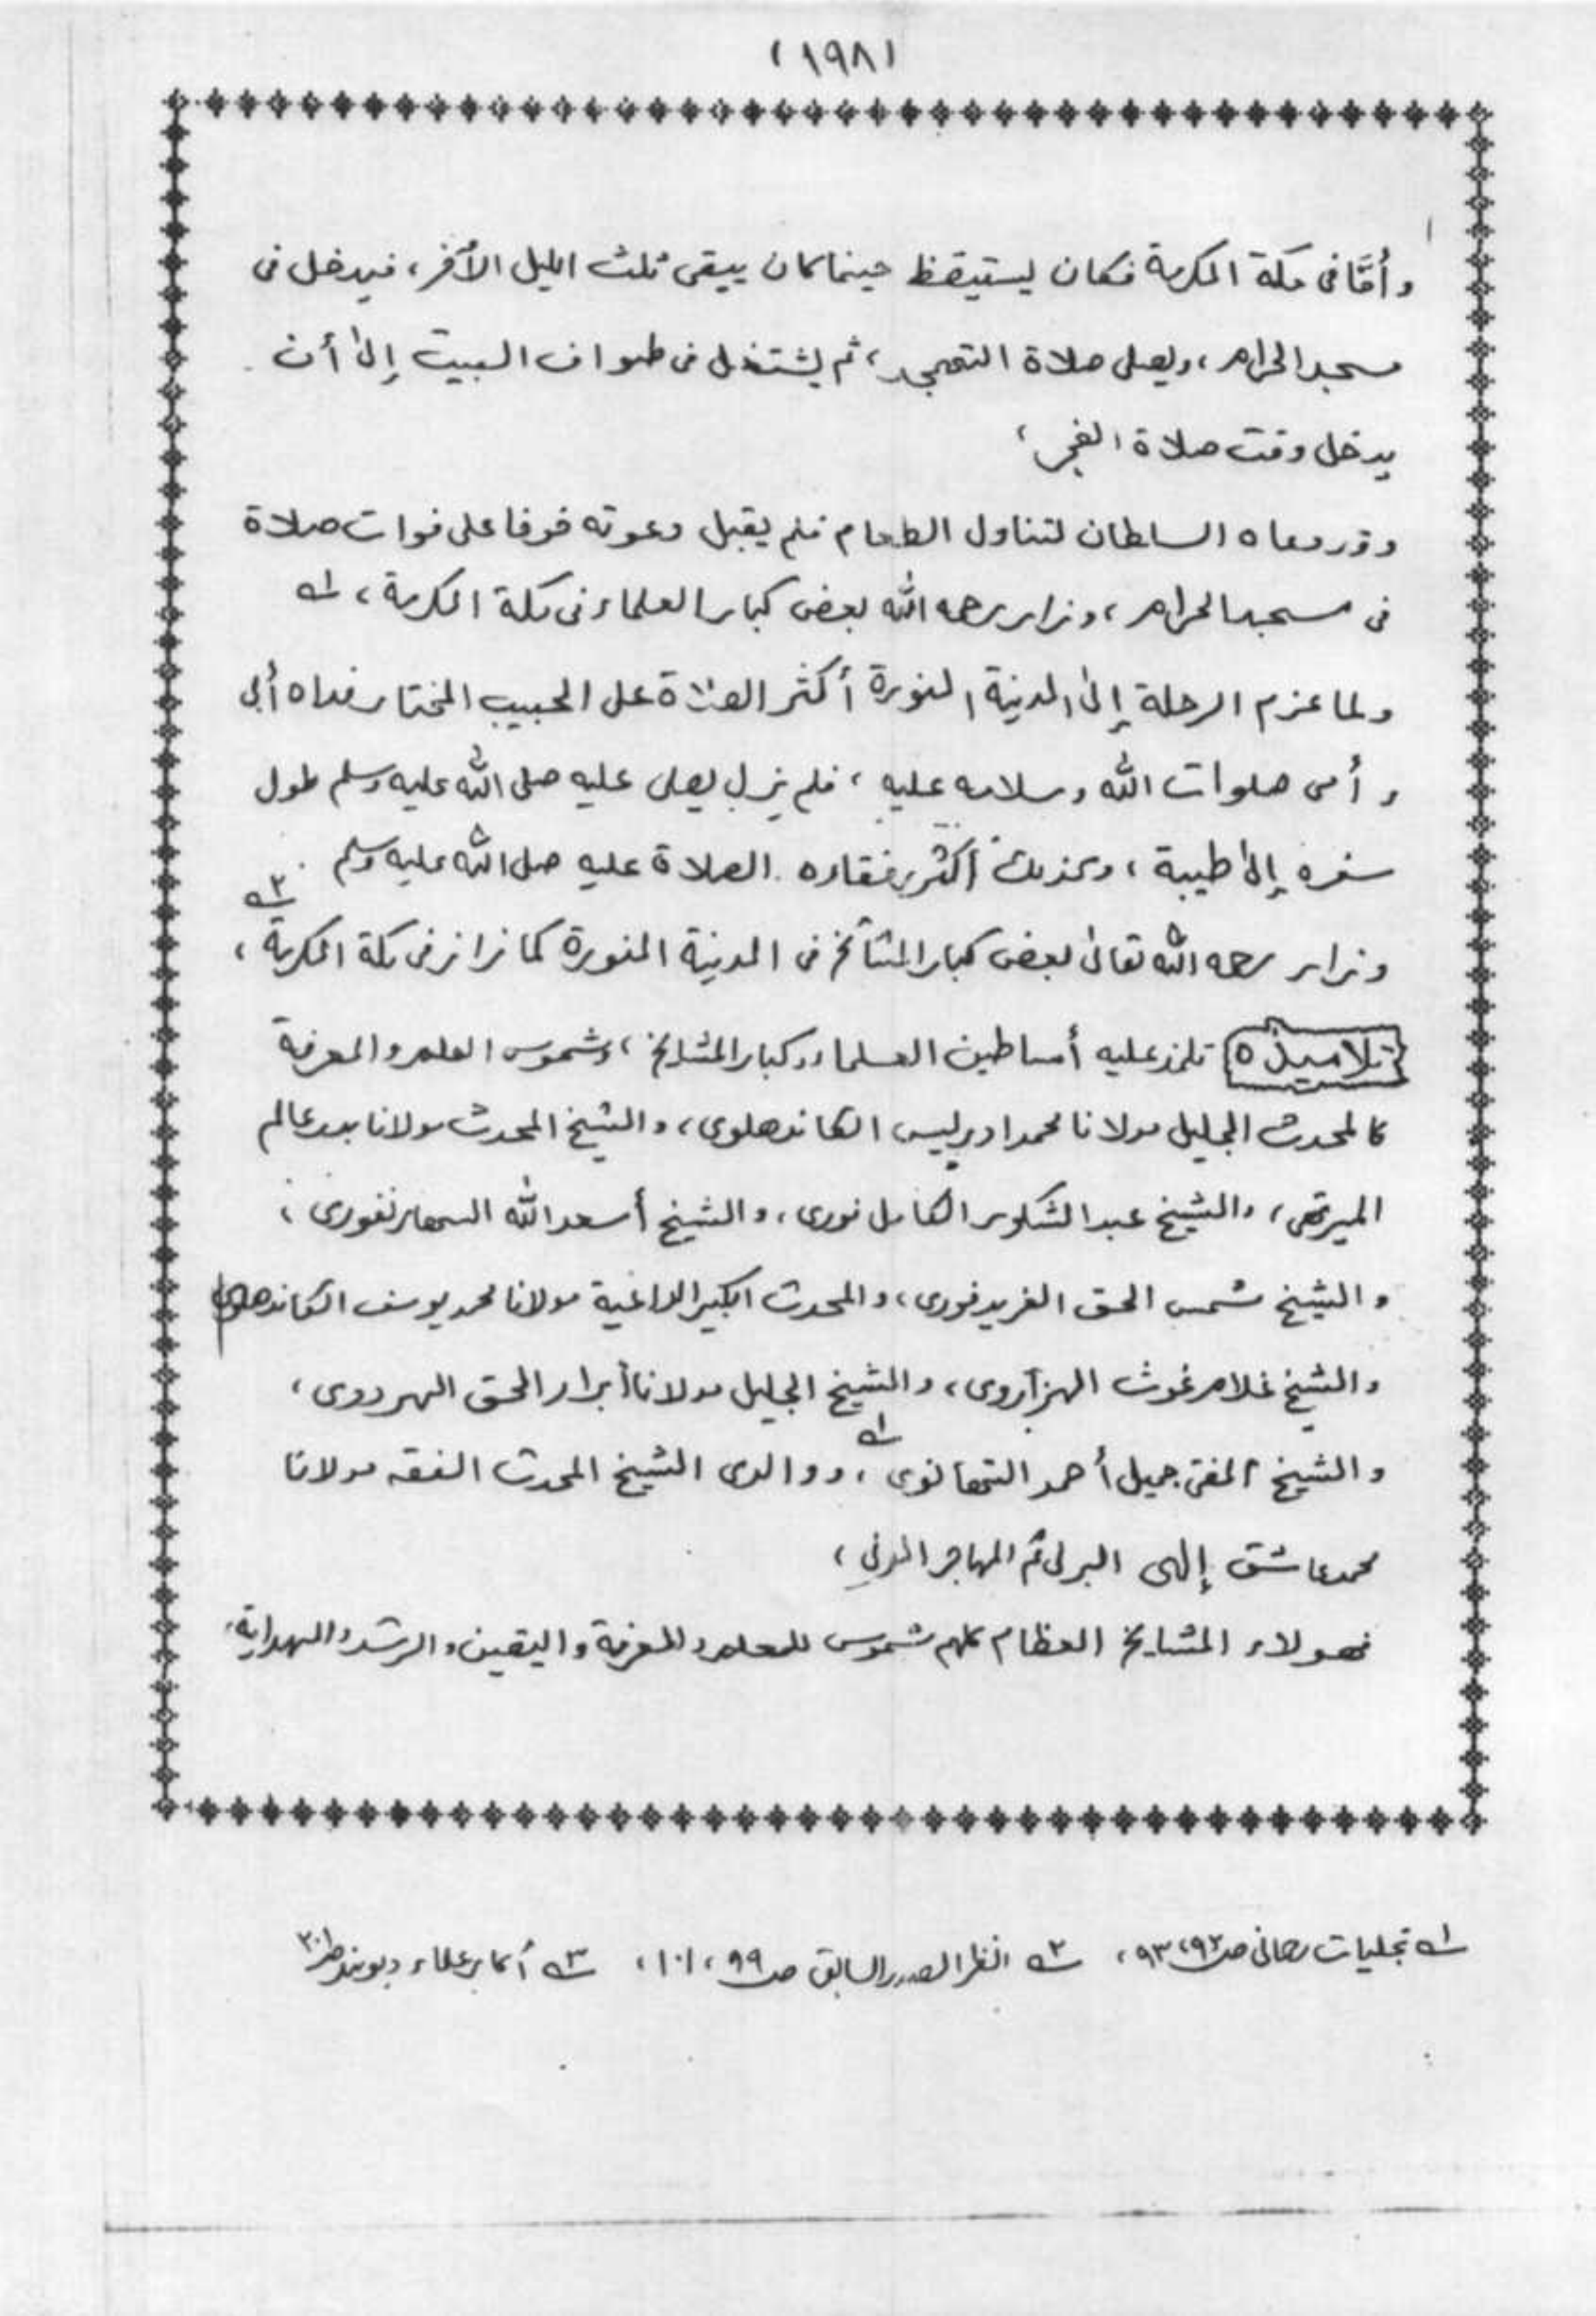 (١٩٨)
وأمَّا فى مكة المكرمة فكان يستيقظ حينما كان يبقى ثلث الليل الأخر، فيدخل فى
مسجد الحرام، ويصلى صلاة التهجد، ثم يشتغل فى طواف البيت إلى أن
يدخل وقت صلاة الفجر،
وقد دعاه السلطان لتناول الطعام فلم يقبل دعوته خوفا على فوات صلاة
فى مسجد الحرام، وزار رحمه الله بعض كبار العلماء فى مكة المكرمة، ١
ولما عزم الرحلة إلى المدينة المنورة أكثر الصلاة على الحبيب المختار فداه أبى
وأمى صلوات الله وسلامه عليه، فلم يزل يصلى عليه صلى الله عليه وسلم طول
سفره إلى طيبة، وكذلك أكثر رفقاءه الصلاة عليه صلى الله عليه وسلم
وزار رحمه الله تعالى بعض كبار المشائخ فى المدينة المنورة كما زار فى مكة المكرمة، ٢
تلاميذه تلمذ عليه أساطين العلماء وكبار المشايخ، وشموس العلم والمعرفة
كالمحدث الجليل مولانا محمد ادريس الكاندهلوى، والشيخ المحدث مولانا بدر عالم
الميرتهى، والشيخ عبد الشكور الكامل فورى، والشيخ أسعد الله السهارنفورى،
والشيخ شمس الحق الفريدفورى، والمحدث الكبير الداعية مولانا محمد يوسف الكاندهلوى
والشيخ غلام غوث الهزاروى، والشيخ الجليل مولانا أبرار الحق الهردوى،
والشيخ المفتى جميل أحمد التهانوى ١، ووالدى الشيخ المحدث الفقه مولانا
محمد عاشق إلهى البرنى ثم المهاجر المدنى،
فهولاء المشايخ العظام كلهم شموس للعلم والمعرفة واليقين والرشد والهداية،
١ تجليات رحمانى صـ ٩٢، ٩٣، ٢ انظر المصدر السابق صـ ٩٩، ١٠١، ٣ أكابر علماء ديوبند صـ